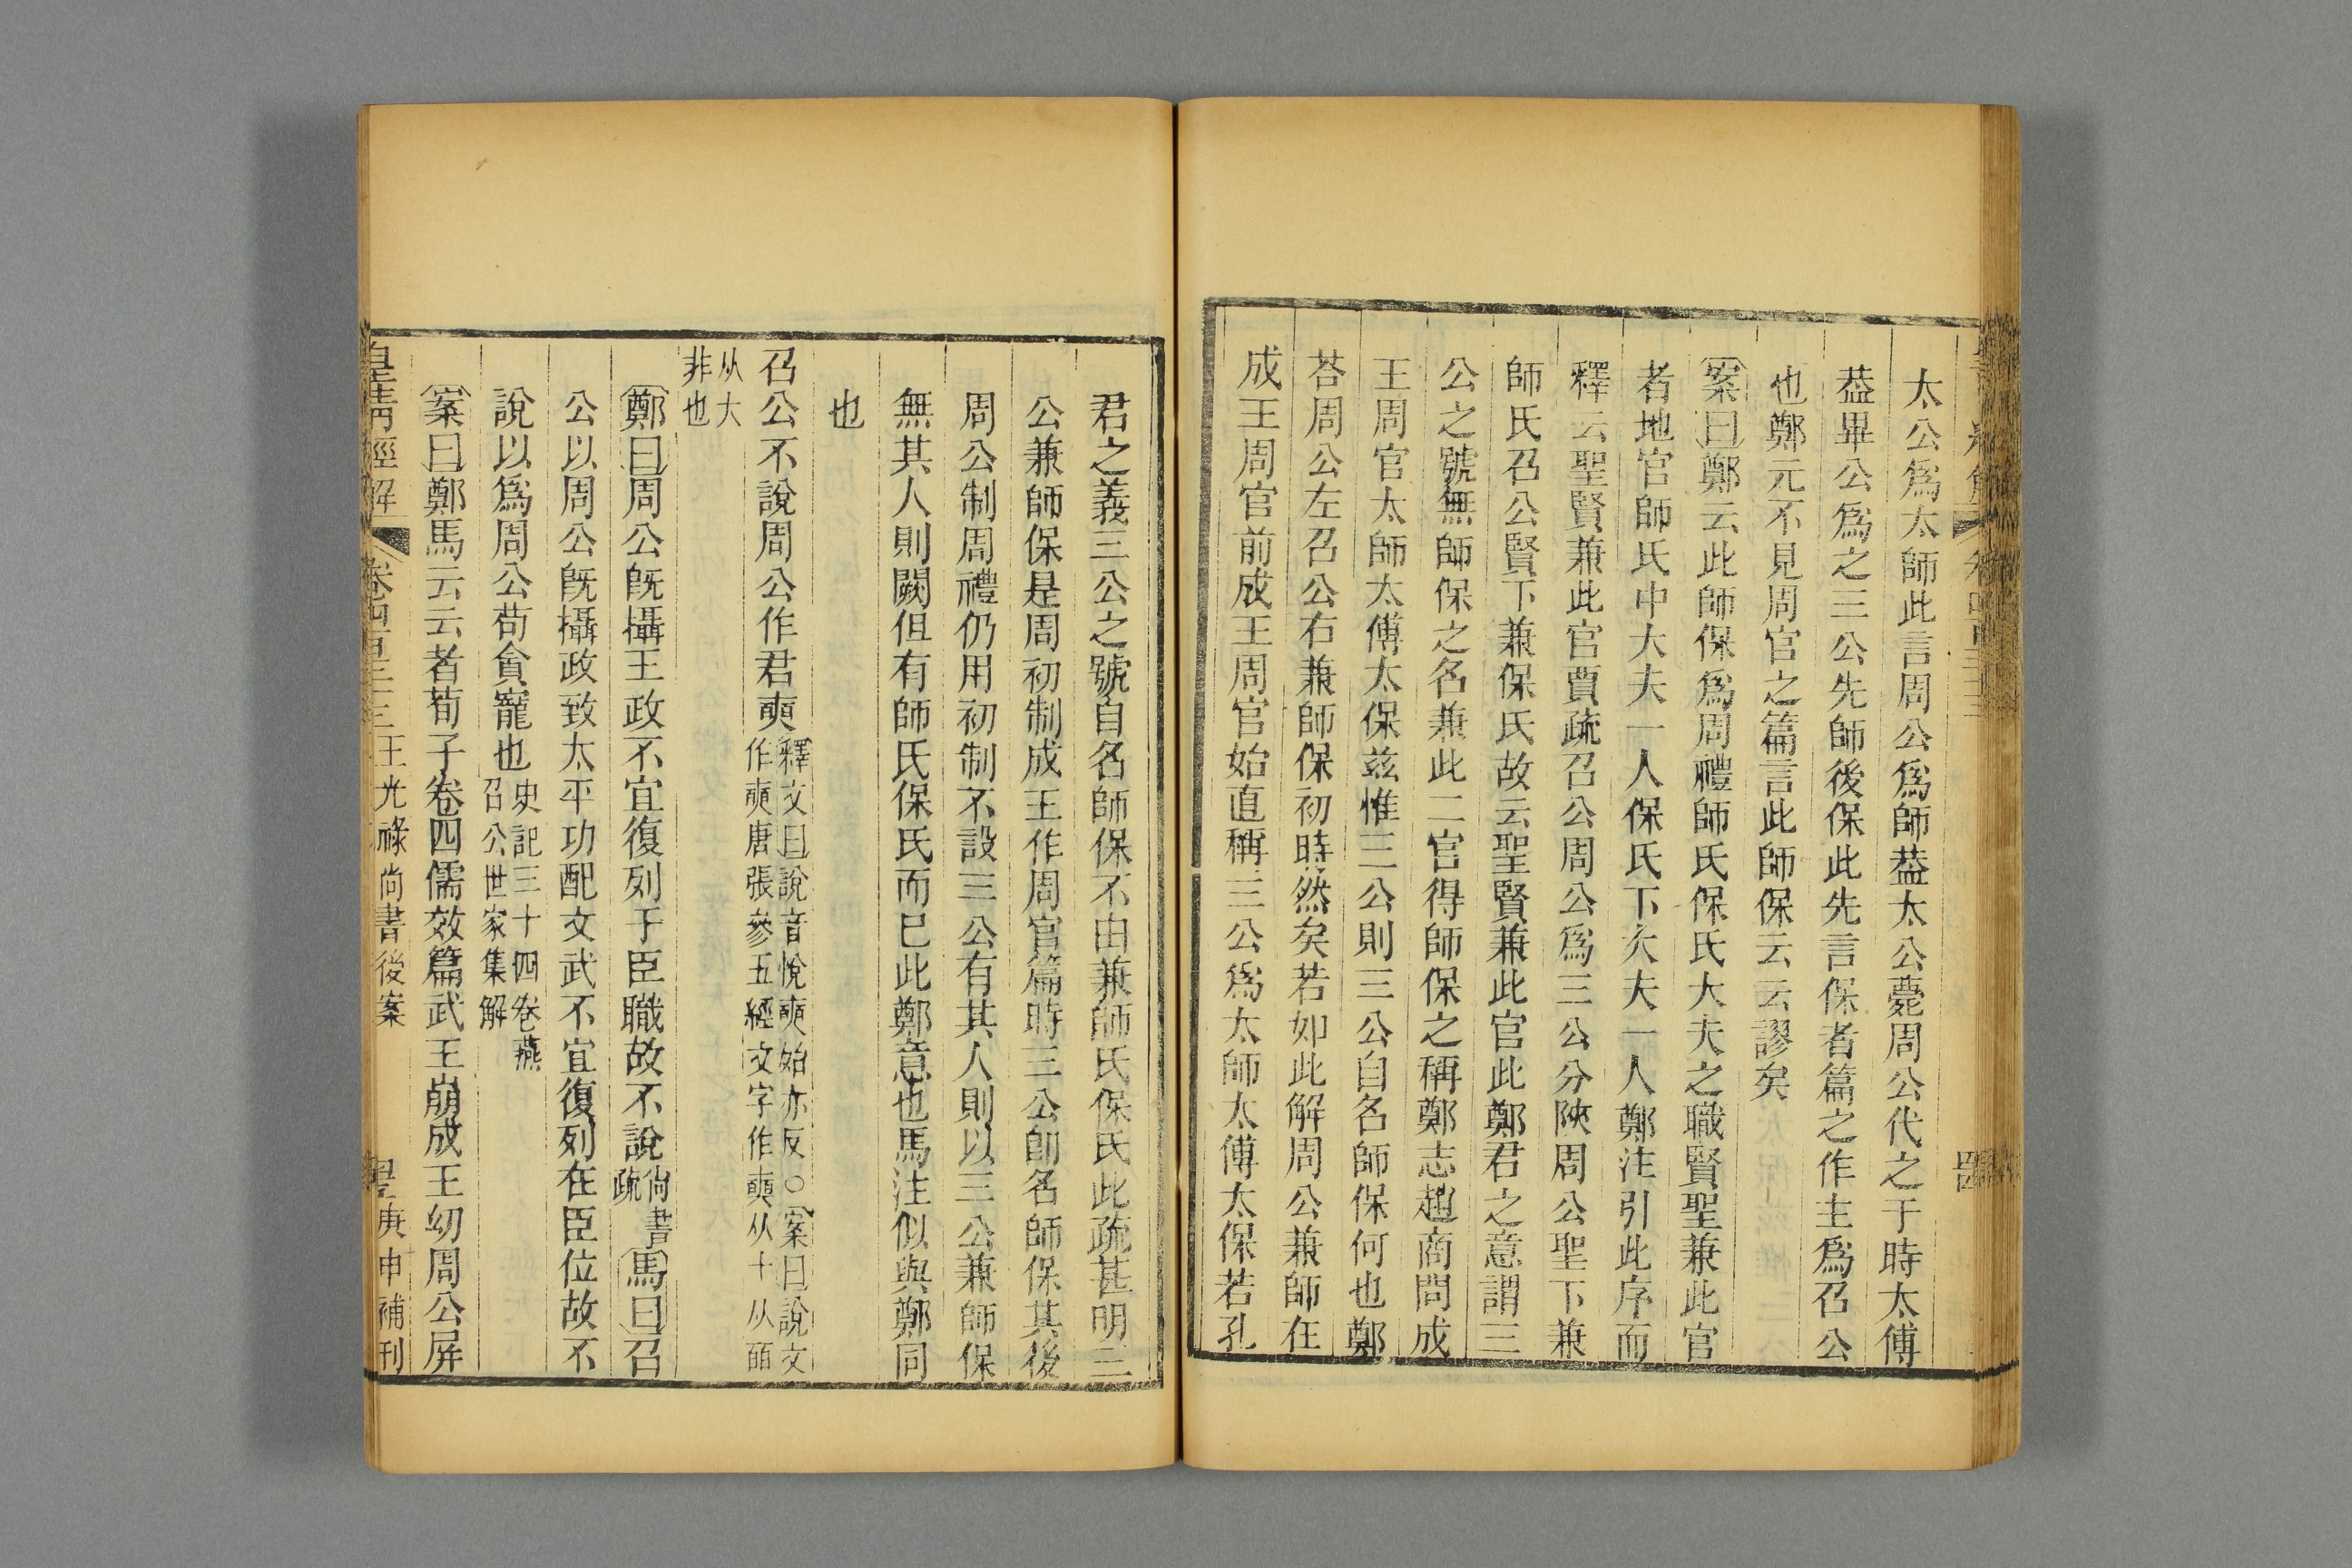 太公爲太師此言周公爲師葢太公薨周公代之于時太傅
葢畢公爲之三公先師後保此先言保者篇之作主爲召公
也鄭元不見周官之篇言此師保云云謬矣
案曰鄭云此師保爲周禮師氏保氏大夫之職賢聖兼此官
者地官師氏中大夫一人保氏下大夫一人鄭注引此序而
釋云聖賢兼此官賈疏召公周公爲三公分陝周公聖下兼
師氏召公賢下兼保氏故云聖賢兼此官此鄭君之意謂三
公之號無師保之名兼此二官得師保之稱鄭志趙商問成
王周官太師太傅太保兹惟三公則三公自名師保何也鄭
荅周公左召公右兼師保初時然矣若如此解周公兼師在
成王周官前成王周官始直稱三公爲太師太傅太保若孔
君之義三公之號自名師保不由兼師氏保氏此疏甚明三
公兼師保是周初制成王作周官篇時三公卽名師保其後
周公制周禮仍用初制不設三公有其人則以三公兼師保
無其人則闕但有師氏保氏而巳此鄭意也馬注似與鄭同
也
召公不說周公作君奭釋文曰說音悅奭始亦反○案曰說文
作奭唐張參五經文字作奭从十从皕
从大
非也
鄭曰周公旣攝王政不宜復列于臣職故不說尙書疏馬曰召
公以周公旣攝政致太平功配文武不宜復列在臣位故不
說以爲周公苟貪寵也史記三十四卷燕
召公世家集解
案曰鄭馬云云者荀子卷四儒效篇武王崩成王幼周公屏
皇淸經解 卷四百三十三 王光祿尙書後案 庚申補刊